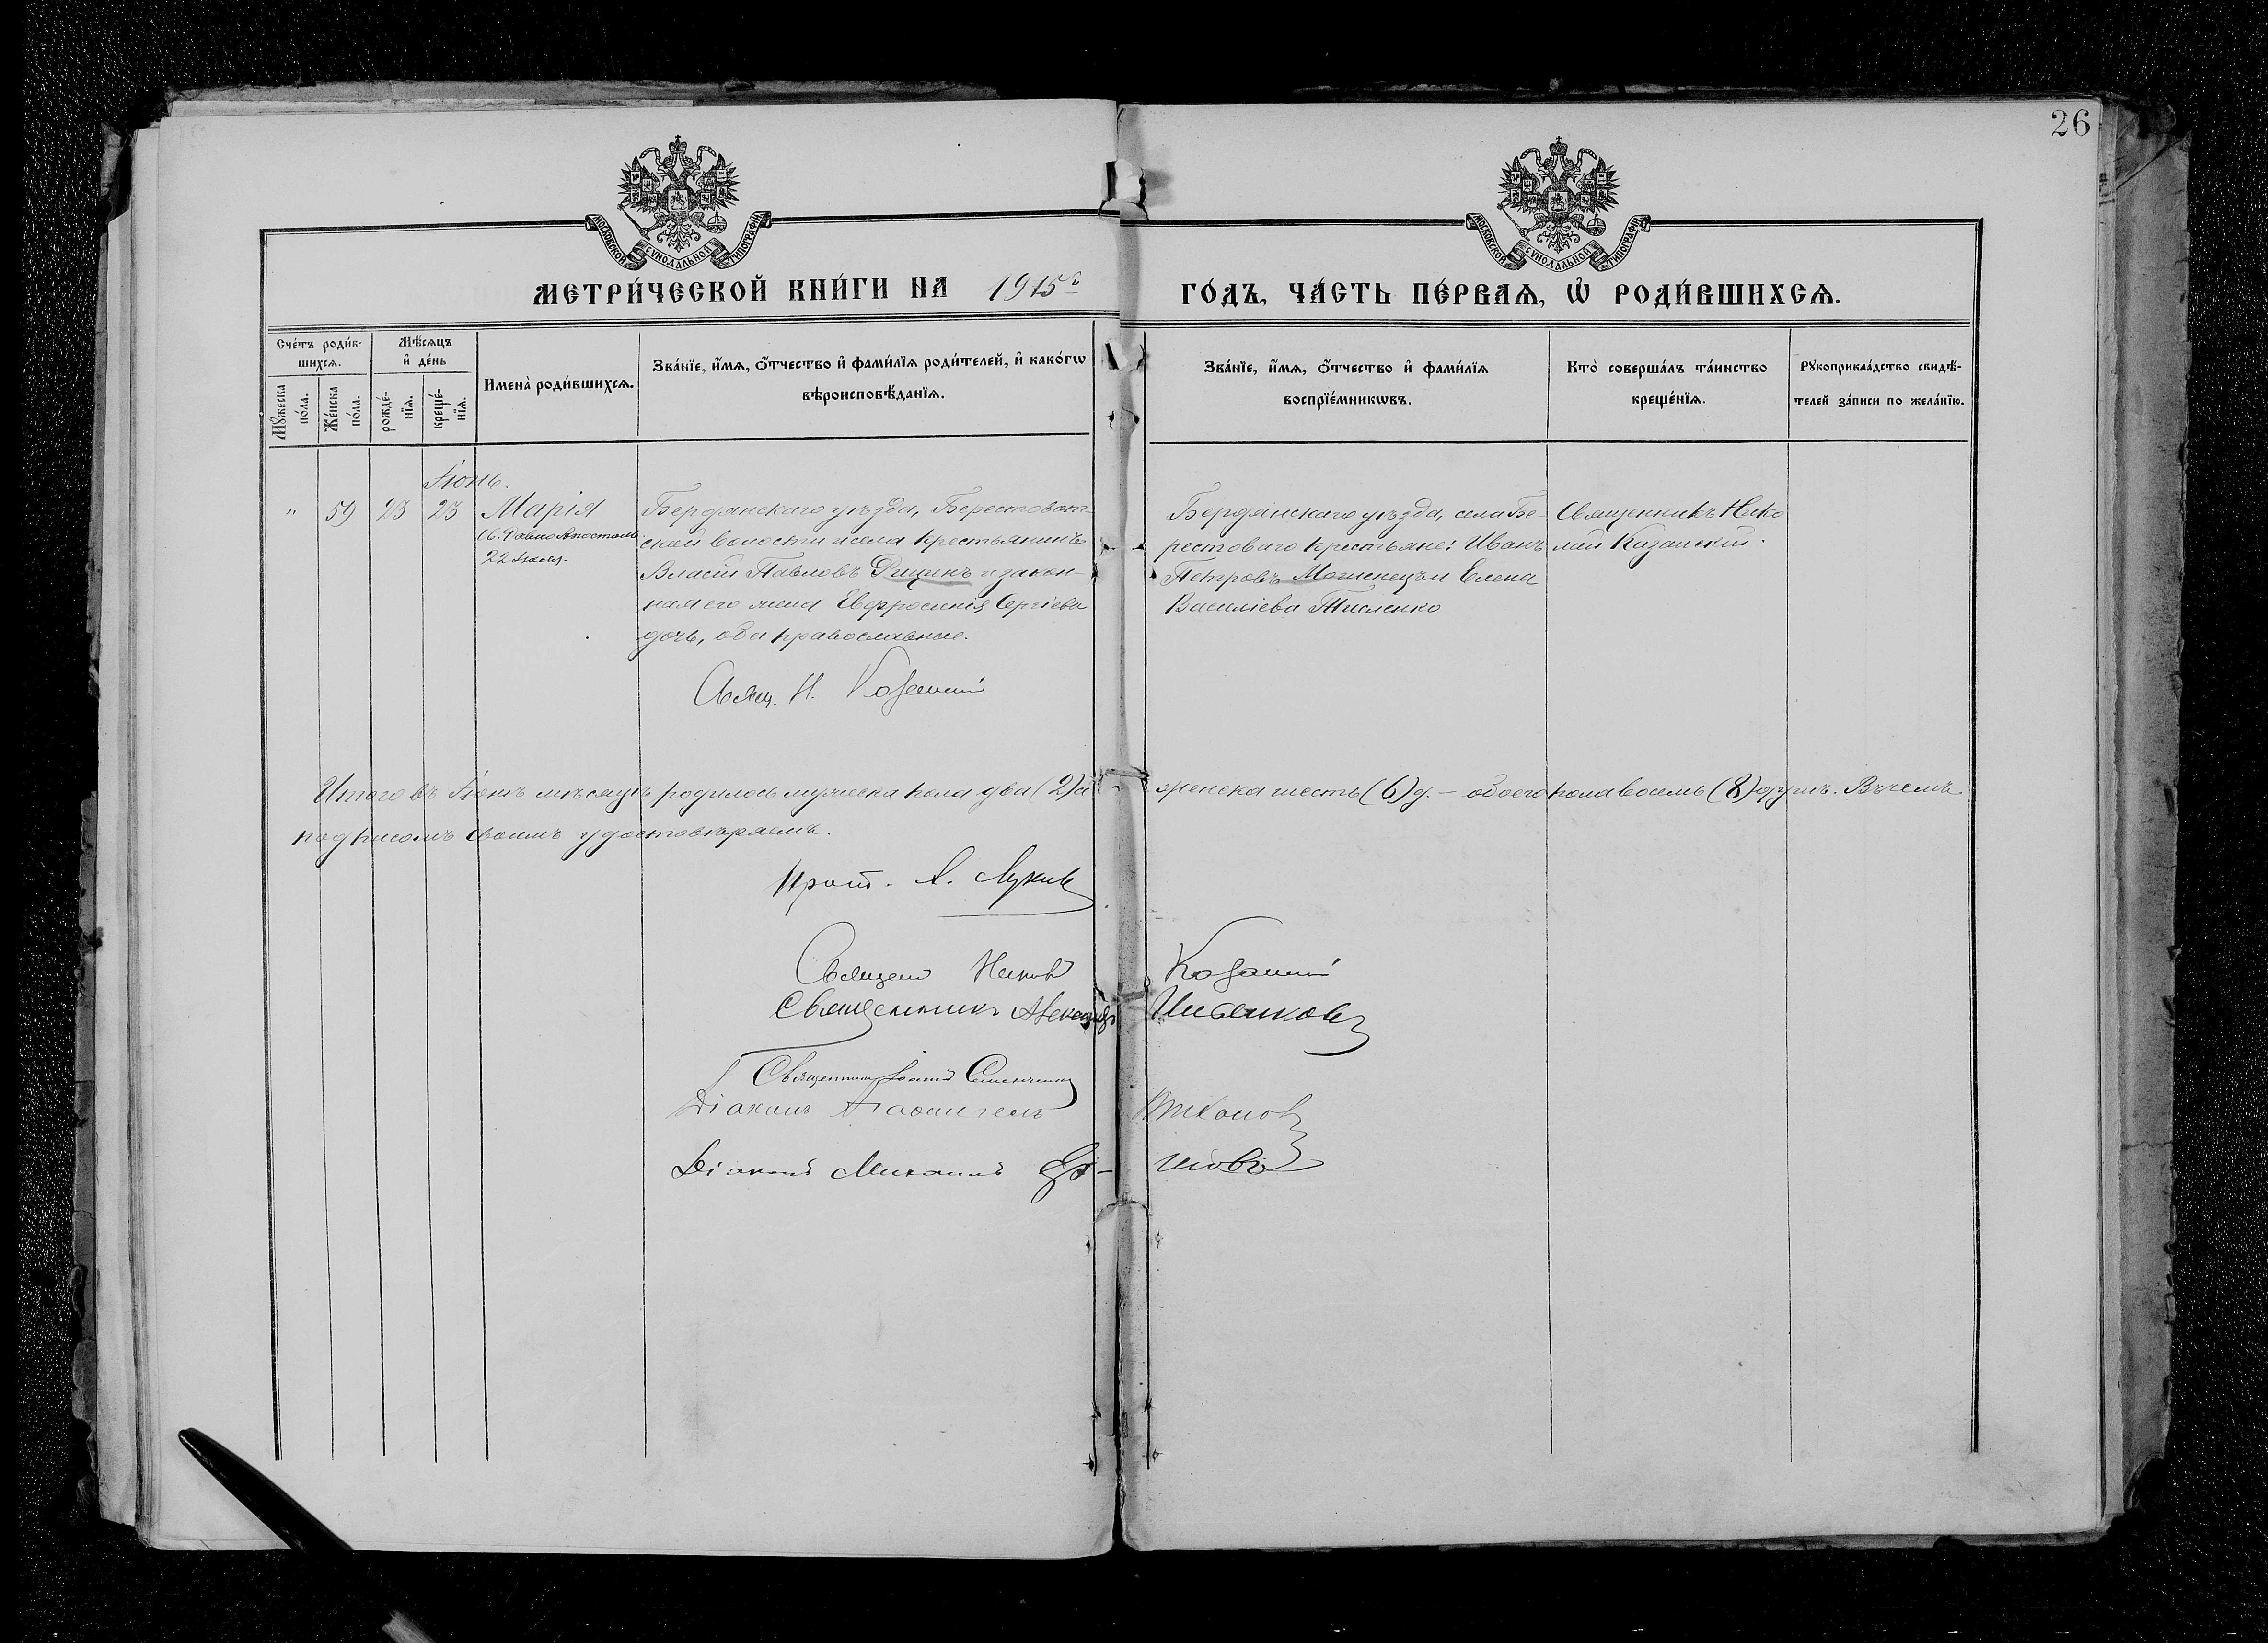 26
МОСКОВСКОЙ СѴНОДАЛЬНОЙ ТИПОГРАФІИ
МОСКОВСКОЙ СѴНОДАЛЬНОЙ ТИПОГРАФІИ
МЕТРИ́ЧЕСКОЙ КНИ́ГИ НА 1915й ГО́ДЪ, ЧА́СТЬ ПЕ́РВАѦ, Ѡ҆ РОДИ́ВШИХСѦ.
Сче́тъ роди́в-
шихсѧ.
Мꙋ́жеска по́ла.
Же́нска по́ла.
Мѣ́сѧцъ
и҆ де́нь
рожде́-нїѧ.
креще́-нїѧ.
Имена̀ роди́вшихсѧ.
Зва́нїе, и҆́мѧ, ѻ҆́тчество и҆ фами́лїѧ роди́телей, и҆ како́гѡ
вѣроисповѣ́данїѧ.
Зва́нїе, и҆́мѧ, ѻ҆́тчество и҆ фами́лїѧ
воспрїе́мникѡвъ.
Кто̀ соверша́лъ та́инство
креще́нїѧ.
Рꙋкоприкла́дство свидѣ́-
телей за́писи по жела́нїю.
Іюнь.
" 59 23 23 Марія
22 Іюля.
Бердянскаго уѣзда, Берестоват-
ской волости и села крестьянинъ
Власій Павловъ и закон-
ная его жена Евфросинія Сергіева
дочь, оба православные.
Свящ. Н. Казанскій
Бердянскаго уѣзда, села Бе-
рестоваго крестьяне: Иванъ
Петровъ и Елена
Василіева
Священникъ Нико
лай Казанскій.
Итого въ Іюнѣ мѣсяцѣ родилось мужеска пола два (2) а женска шесть (6) д. — обоего пола восемь (8) душъ. Въ чемъ
подписомъ своимъ удостовѣряемъ.
Прот. А.
Священ Никол Казанскій
Священникъ Александръ
Священникъ Іоаннъ
Діаконъ Тихонов
Діаконъ Михаилъ